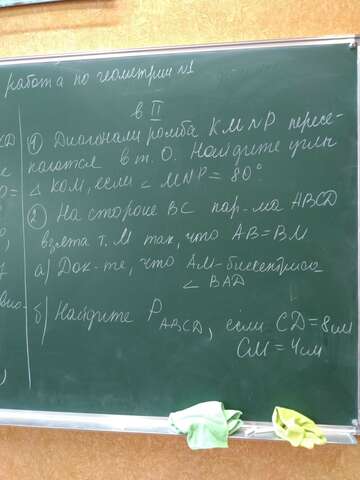 работа по геометрии №1
в II
① Диагонали ромба KMNP пересе-
каются в т. О. Найдите углы
△ КОМ, если ∠ MNP = 80°.
② На стороне ВС пар-ма ABCD
взята т. М так, что AB=BM
а) Док-те, что АМ-биссектриса
∠ BAD
б) Найдите P ABCD, если CD=8см
CM=4см